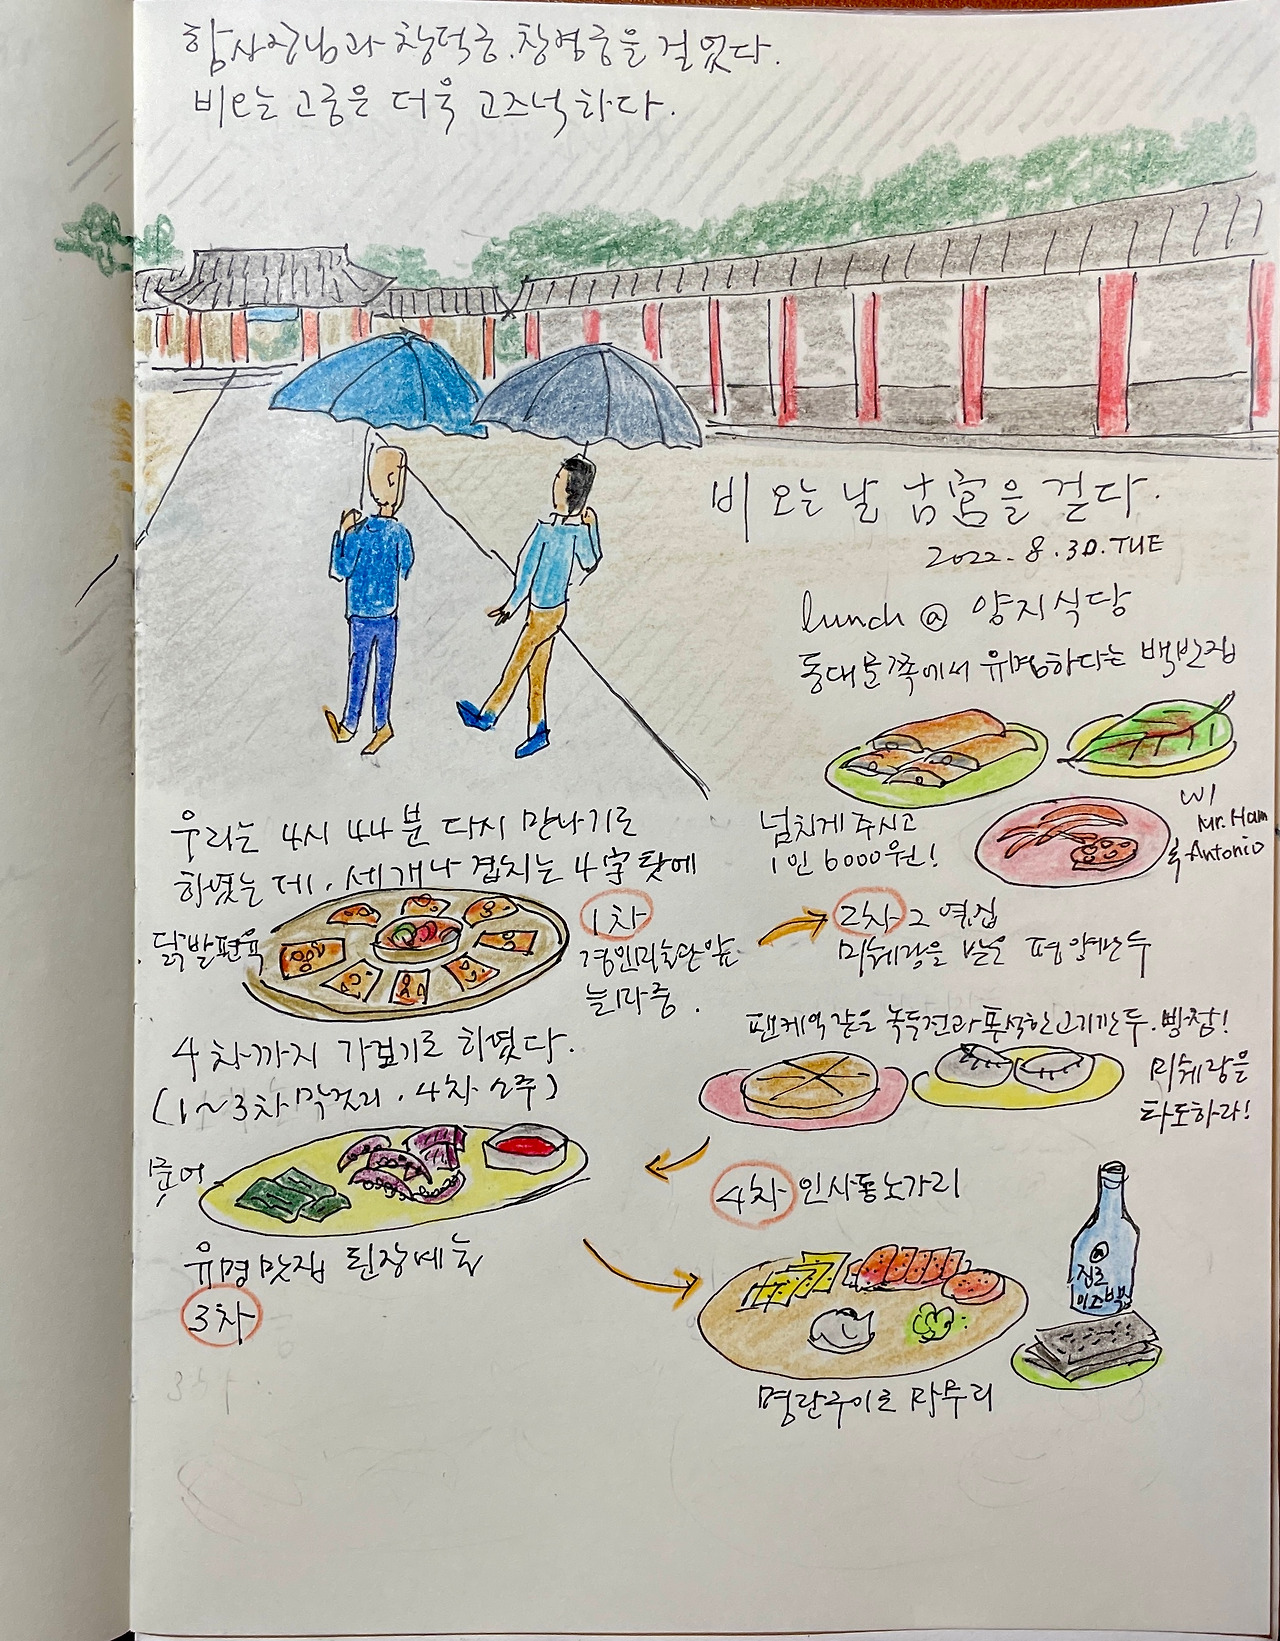 함사진님과 창덕궁.창경궁을 걸었다.
비오는 고궁은 더욱 고즈넉하다.
비 오는 날 古宮을 걷다.
2022.8.30.TUE
lunch @ 양지식당
동대문쪽에서 유명하다는 백반집
넘치게 주시고
1인 6000원!
w/
Mr. Ham
& Antonio
우리는 4시 44분 다시 만나기로
하였는데, 세개나 겹치는 4字 탓에
닭발편육
1차
경인미술관앞
늴리리아중
4차까지 가보기로 하였다.
(1~3차 막걸리, 4차 소주)
2차 그 옆집
미쉐랑을 받은 평양만두
팬케익같은 녹두전과 푸석한 고기만두.빵참!
미쉐랑을
타도하라!
문어
유명맛집 된장예술
3차
4차 인사동노가리
@
진로
이즈백
명란구이로 마무리